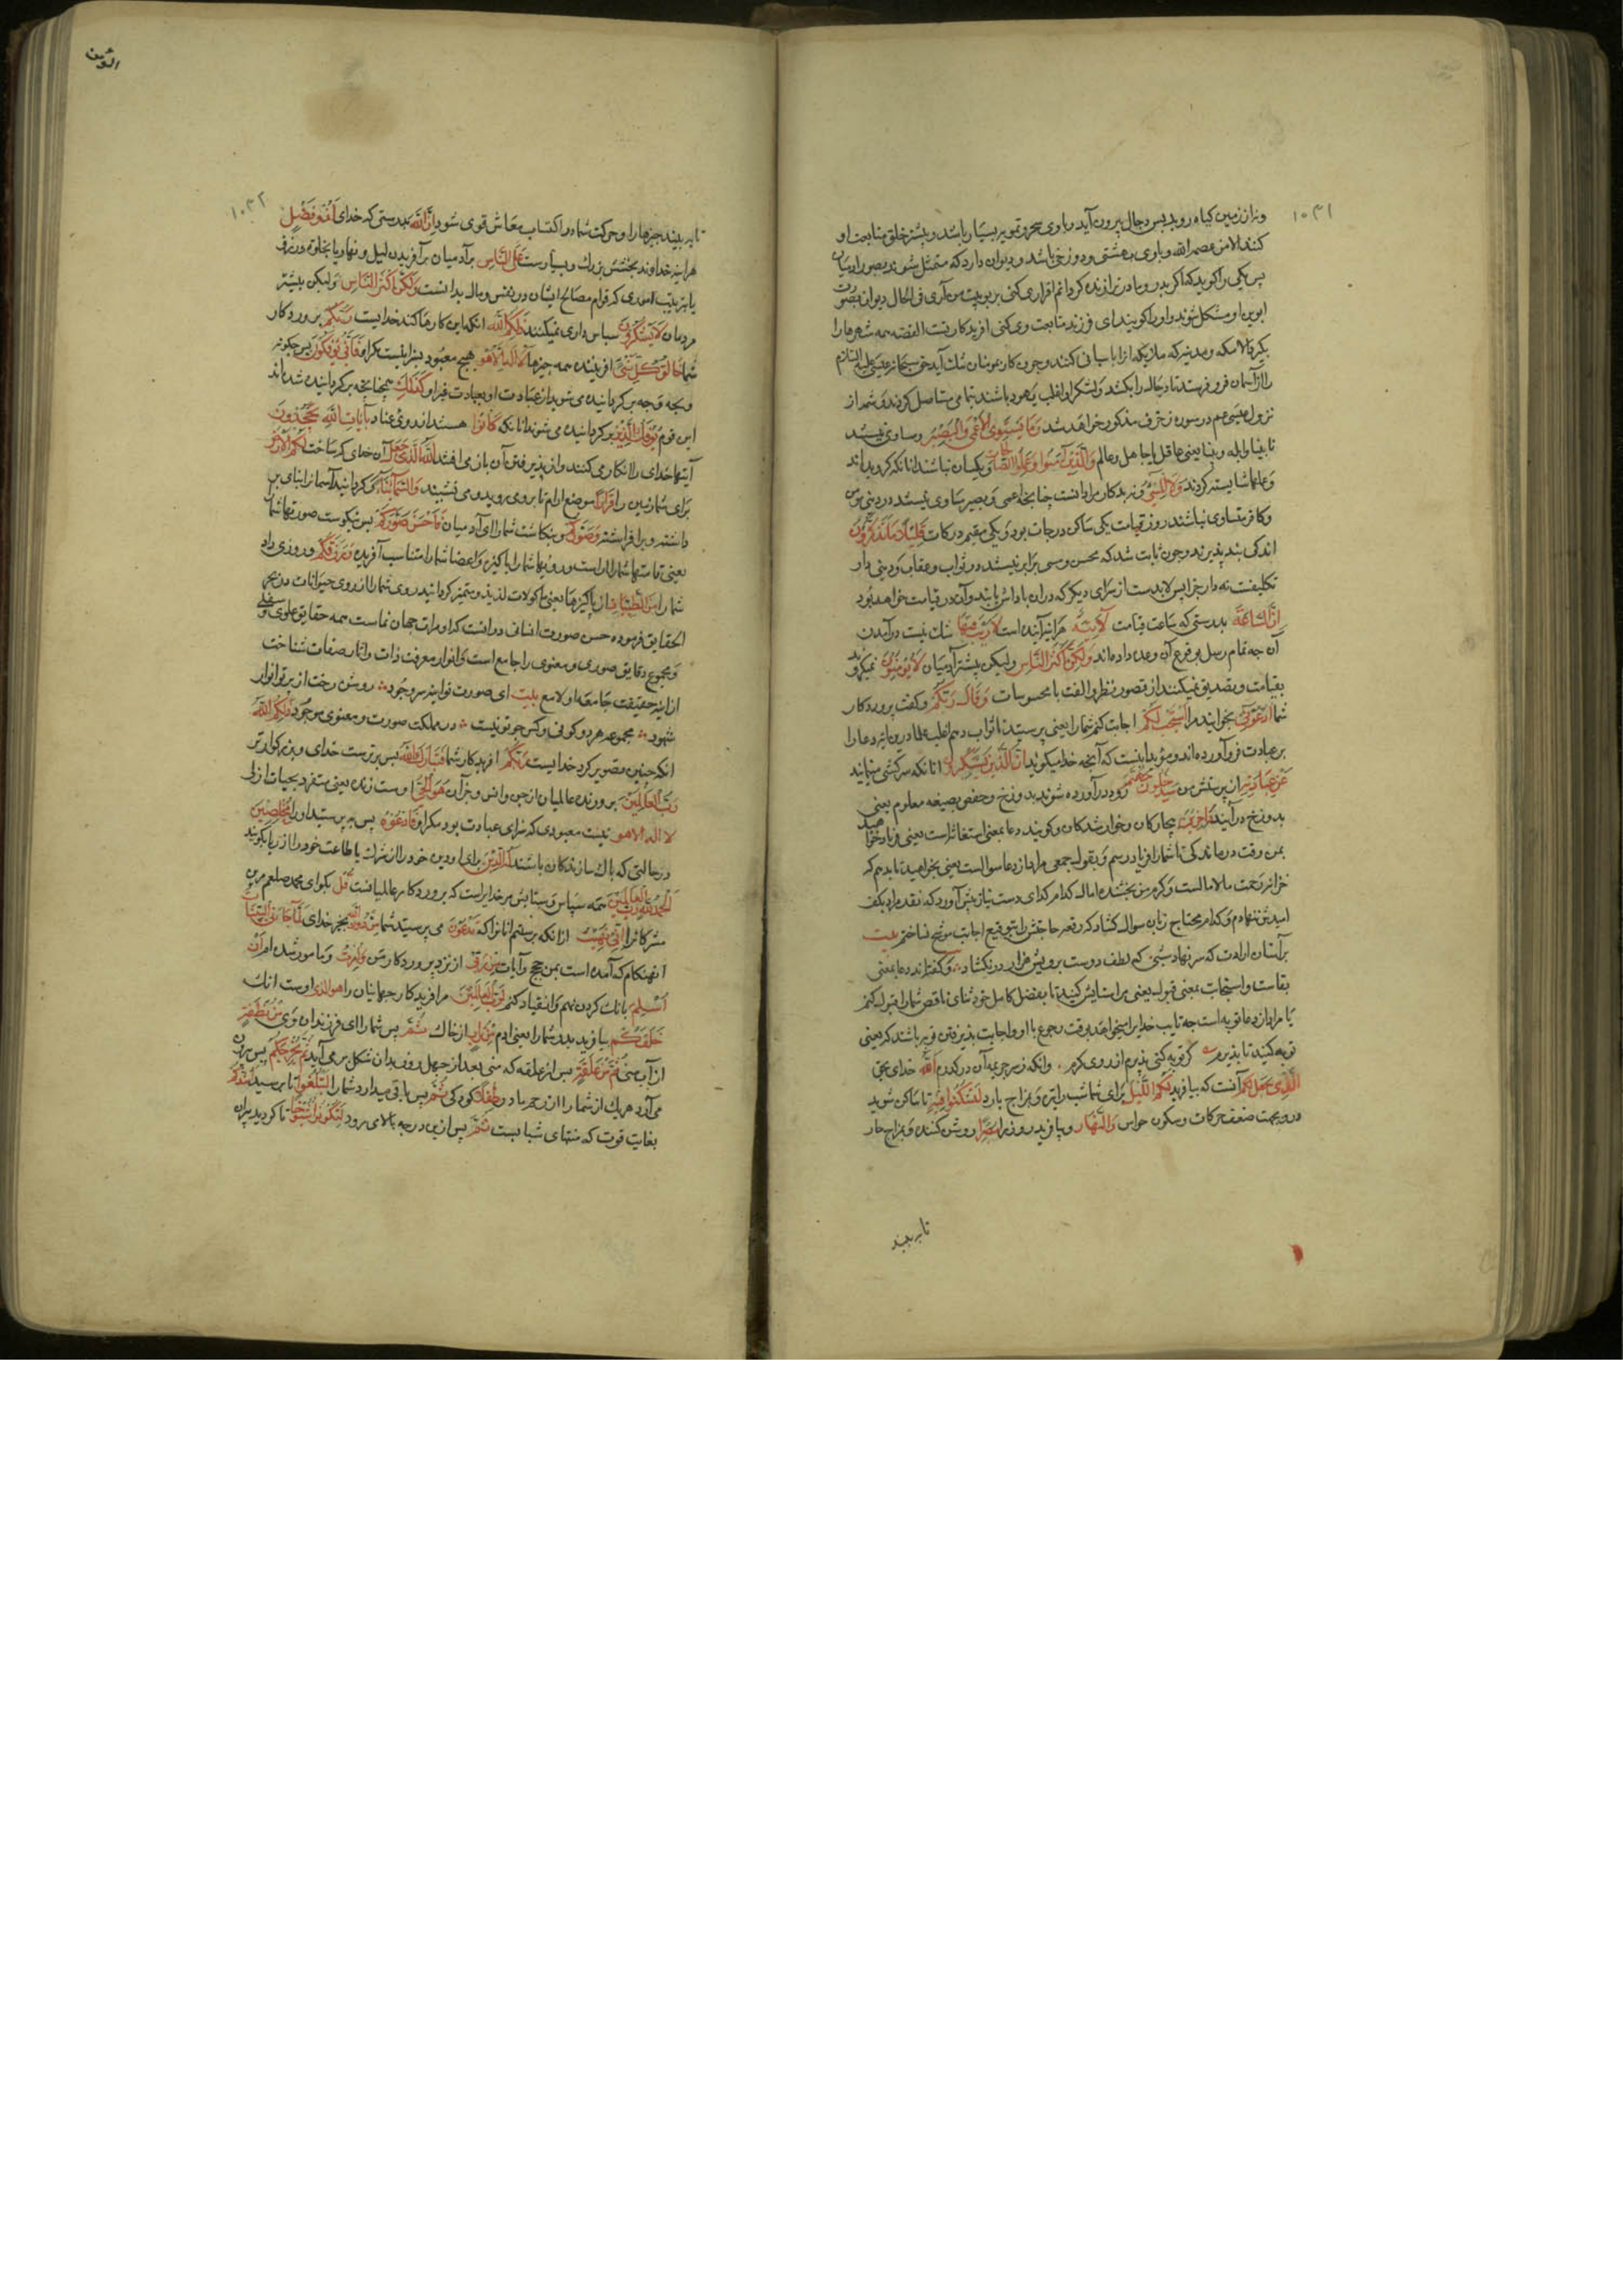 ۱۰۳۱
ونه از زمین کیاه روید پس دجال بیرون آید و با وی سحر و تمویه بسیار باشد و بیشتر خلق متابعت او
کنند الا من عصمه الله و با وی بهشتی و دوزخی باشد و دیوان دارد که متمثل شوند بصور ادمیان
پس یکی را کوید که اکر پدر و مادر ترا زنده کردانم اقرار می کنی بربوبیت من آری فی الحال دیوان بصورت
ابوین او متشکل شوند و او را کویند ای فرزند متابعت وی کن افریدکار تست القصه همه شهرها را
بکیرد الا مکه و مدینه که ملایکه انرا پاسبانی کنند و چون کار بر مومنان تنک آید حق سبحانه عیسی علیه السلام
را از آسمان فرو فرستد تا دجال را بکشد و لشکر او اغلب یهود باشند بتمامی مستاصل کردند و شمه از
نزول عیسی عم در سوره زخرف مذکور خواهد شد وَمَا یَسْتَوِی الْاَعْمٰی وَالْبَصِیْرُ و مساوی نیستند
نابینا و بینا یعنی غافل یا جاهل و عالم وَالَّذِیْنَ اٰمَنُوا وَعَمِلُوا الصَّالِحَاتِ و یکسان نباشند انانکه کرویده اند
و عملها شایسته کردند وَلَا الْمُسِیْءُ و نه بدکار مراد انست چنانچه اعمی و بصیر مساوی نیستند در دینی مومن
و کافر متساوی نباشند روز قیامت یکی ساکن درجات بود و یکی مقیم درکات قَلِیْلًا مَا تَتَذَکَّرُوْنَ
اندکی پند پذیرند و چون ثابت شد که محسن و مسی برابر نیستند در ثواب و عقاب و دینی دار
تکلیفست نه دار جزا پس لابدست از سرای دیکر که دران پاداش یابند و آن در قیامت خواهد بود
اِنَّ السَّاعَةَ بدرستی که ساعت قیامت لَاٰتِیَةٌ هر اینه آینده است لَا رَیْبَ فِیْهَا شک نیست در آمدن
آن چه تمام رسل بوقوع آن وعده داده اند وَلٰکِنَّ اَکْثَرَ النَّاسِ ولیکن بیشتر آدمیان لَا یُؤْمِنُوْنَ نمیکروند
بقیامت و تصدیق نمیکنند از قصور نظر و الفت با محسوسات وَقَالَ رَبُّکُمْ و کفت پروردکار
شما ادْعُوْنِیْ بخوانید مرا اَسْتَجِبْ لَکُمْ اجابت کنم شما را یعنی بپرستید تا ثواب دهم اغلب علما درین ایه دعا را
بر عبادت فرو آورده اند و مؤید اینست که آنچه خدا میکوید اِنَّ الَّذِیْنَ یَسْتَکْبِرُوْنَ انانکه سرکشی مینمایند
عَنْ عِبَادَتِیْ از پرستش من سَیَدْخُلُوْنَ جَهَنَّمَ زود در آورده شوند بدوزخ و حفص بصیغه معلوم یعنی
بدوزخ در آیند دَاخِرِیْنَ بیچارکان و خوار شدکان و کویند دعا بمعنی استغاثه است یعنی فریاد خواهید
بمن وقت درماندکی تا شما را فریاد رسم و بقول جمعی مراد از دعا سوالست یعنی بخواهید تا بدهم که
خزانه رحمت مالامالست و کرم من بخشنده امال کدام کدای دست نیاز پیش آورد که نقد مراد بکف
امیدش ننهادم و کدام محتاج زبان سوال کشاد که رقعه حاجتش را بتوقیع اجابت موشح نساختم بیت
بر آستان ارادت که سر نهاد شبی که لطف دوست برویش هزار در نکشاد و کفته اند دعا بمعنی
یا مراد از دعا توبه است چه تایب خدایرا میخواند بوقت رجوع با او و اجابت پذیرفتن توبه باشد کویا یعنی
توبه کنید تا پذیرم کر توبه کنی پذیرم از روی کرم اَللّٰهُ خدای بحق
الَّذِیْ جَعَلَ لَکُمُ آنست که بیافرید لَکُمُ اللَّیْلَ برای شما شب را لِتَسْکُنُوْا فِیْهِ تا ساکن شوید
درو بجهت ضعف حرکات و سکون حواس وَالنَّهَارَ و بیافرید روز را مُبْصِرًا روشن کننده و بمزاج حار
تا به بینید
الومن
۱۰۳۲
تا به بینید چیزها را و حرکت شما در اکتساب معاش قوی شود اِنَّ اللّٰهَ بدرستی که خدای لَذُوْ فَضْلٍ
هر اینه خداوند بخشش بزرک و بسیارست عَلَی النَّاسِ بر آدمیان بر آفریدن لیل و نهار
ولٰکِنَّ اَکْثَرَ النَّاسِ ولیکن بیشتر
مردمان لَا یَشْکُرُوْنَ سپاس داری نمیکنند ذٰلِکُمُ اللّٰهُ انکه این کارها کند خدایست رَبُّکُمْ پروردکار
شما خَالِقُ کُلِّ شَیْءٍ افریننده همه چیزها لَا اِلٰهَ اِلَّا هُوَ هیچ معبود بسزا نیست مکر او فَاَنّٰی تُؤْفَکُوْنَ پس چکونه
و بچه وجه بر کردانیده می شوید از عبادت او بعبادت غیر او کَذٰلِکَ همچنانچه بر کردانیده شده اند
این قوم یُؤْفَکُ الَّذِیْنَ بر کردانیده می شوند انانکه کَانُوْا هستند از روی عناد بِاٰیَاتِ اللّٰهِ یَجْحَدُوْنَ
آیتهاء خدای را انکار می کنند اَللّٰهُ الَّذِیْ جَعَلَ آن خدای که ساخت لَکُمُ الْاَرْضَ
برای شما زمین را قَرَارًا موضع ارام تا بروی میروید و می نشینید وَالسَّمَاءَ بِنَاءً و کردانید آسمانرا بنای بر
داشته و بر افراشته وَصَوَّرَکُمْ و بنکاشت شما را ای آدمیان فَاَحْسَنَ صُوَرَکُمْ پس نیکوست صورتهاء شما
یعنی قامتهاء شما را راست و رویهاء شما را پاکیزه و اعضاء شما را متناسب آفریده وَرَزَقَکُمْ و روزی داد
شما را مِنَ الطَّیِّبَاتِ از پاکیزها یعنی ماکولات لذیذ و متمیز کردانید روزی شما را از روزی حیوانات در بحر
الحقایق فرموده حسن صورت انسان درانست که او مرات جهان نماست همه حقایق علوی و سفلی
و مجموع دقایق صوری و معنوی را جامع است و انوار معرفت ذات و اثار صفات شناخت
از اینه حقیقت جامعه او لامع بیت ای صورت تو اینه سر وجود روشن رخت از پرتو انوار
شهود مجموعه هر دو کونی و کس چو تو نیست در مملکت صورت و معنوی موجود ذٰلِکُمُ اللّٰهُ
انکه چنین تصویر کرد خدایست رَبُّکُمْ افریدکار شما فَتَبَارَکَ اللّٰهُ پس برترست خدای و بزرکوارتر
رَبُّ الْعَالَمِیْنَ پرورنده عالمیان از جن و انس و جز آن هُوَ الْحَیُّ اوست زنده یعنی متفرد بحیات ازلی
لا اله الا هو نیست معبودی که سزای عبادت بود مکر او فَادْعُوْهُ پس بپرستید او را مُخْلِصِیْنَ
در حالتی که پاک سازندکان باشند لَهُ الدِّیْنَ برای او دین خود را از شرک یا طاعت خود را از ریا بکویید
اَلْحَمْدُ لِلّٰهِ رَبِّ الْعَالَمِیْنَ همه سپاس و ستایش مر خدایراست که پروردکار عالمیانست قُلْ بکو ای محمد صلعم مر
مشرکانرا اِنِّیْ نُهِیْتُ ازانکه بپرستم انانرا که تَدْعُوْنَ می پرستید شما مِنْ دُوْنِ اللّٰهِ بجز خدای لَمَّا جَاءَنِیَ الْبَیِّنَاتُ
انهنکام که آمده است بمن حجج و آیات مِنْ رَبِّیْ از نزد پروردکار من وَاُمِرْتُ و مامور شده ام اَنْ
اُسْلِمَ بانک کردن نهم و انقیاد کنم لِرَبِّ الْعَالَمِیْنَ مر افریدکار جهانیان را هو الذی اوست انک
خَلَقَکُمْ بیافرید پدر شما را یعنی ادم مِنْ تُرَابٍ از خاک ثُمَّ پس شما را ای فرزندان وی مِنْ نُطْفَةٍ
از آب منی ثُمَّ مِنْ عَلَقَةٍ پس از علقه که منی بعد از چهل روز بدان شکل بر می آید ثُمَّ یُخْرِجُکُمْ پس بیرون
می آرد هر یک از شما را از رحم مادر طِفْلًا کودکی ثُمَّ پس باقی میدارد شما را لِتَبْلُغُوْا تا برسید اَشُدَّکُمْ
بغایت قوت که منتهای شبابست ثُمَّ پس ازین درجه بالا می رود لِتَکُوْنُوْا شُیُوْخًا تا کردید پیران